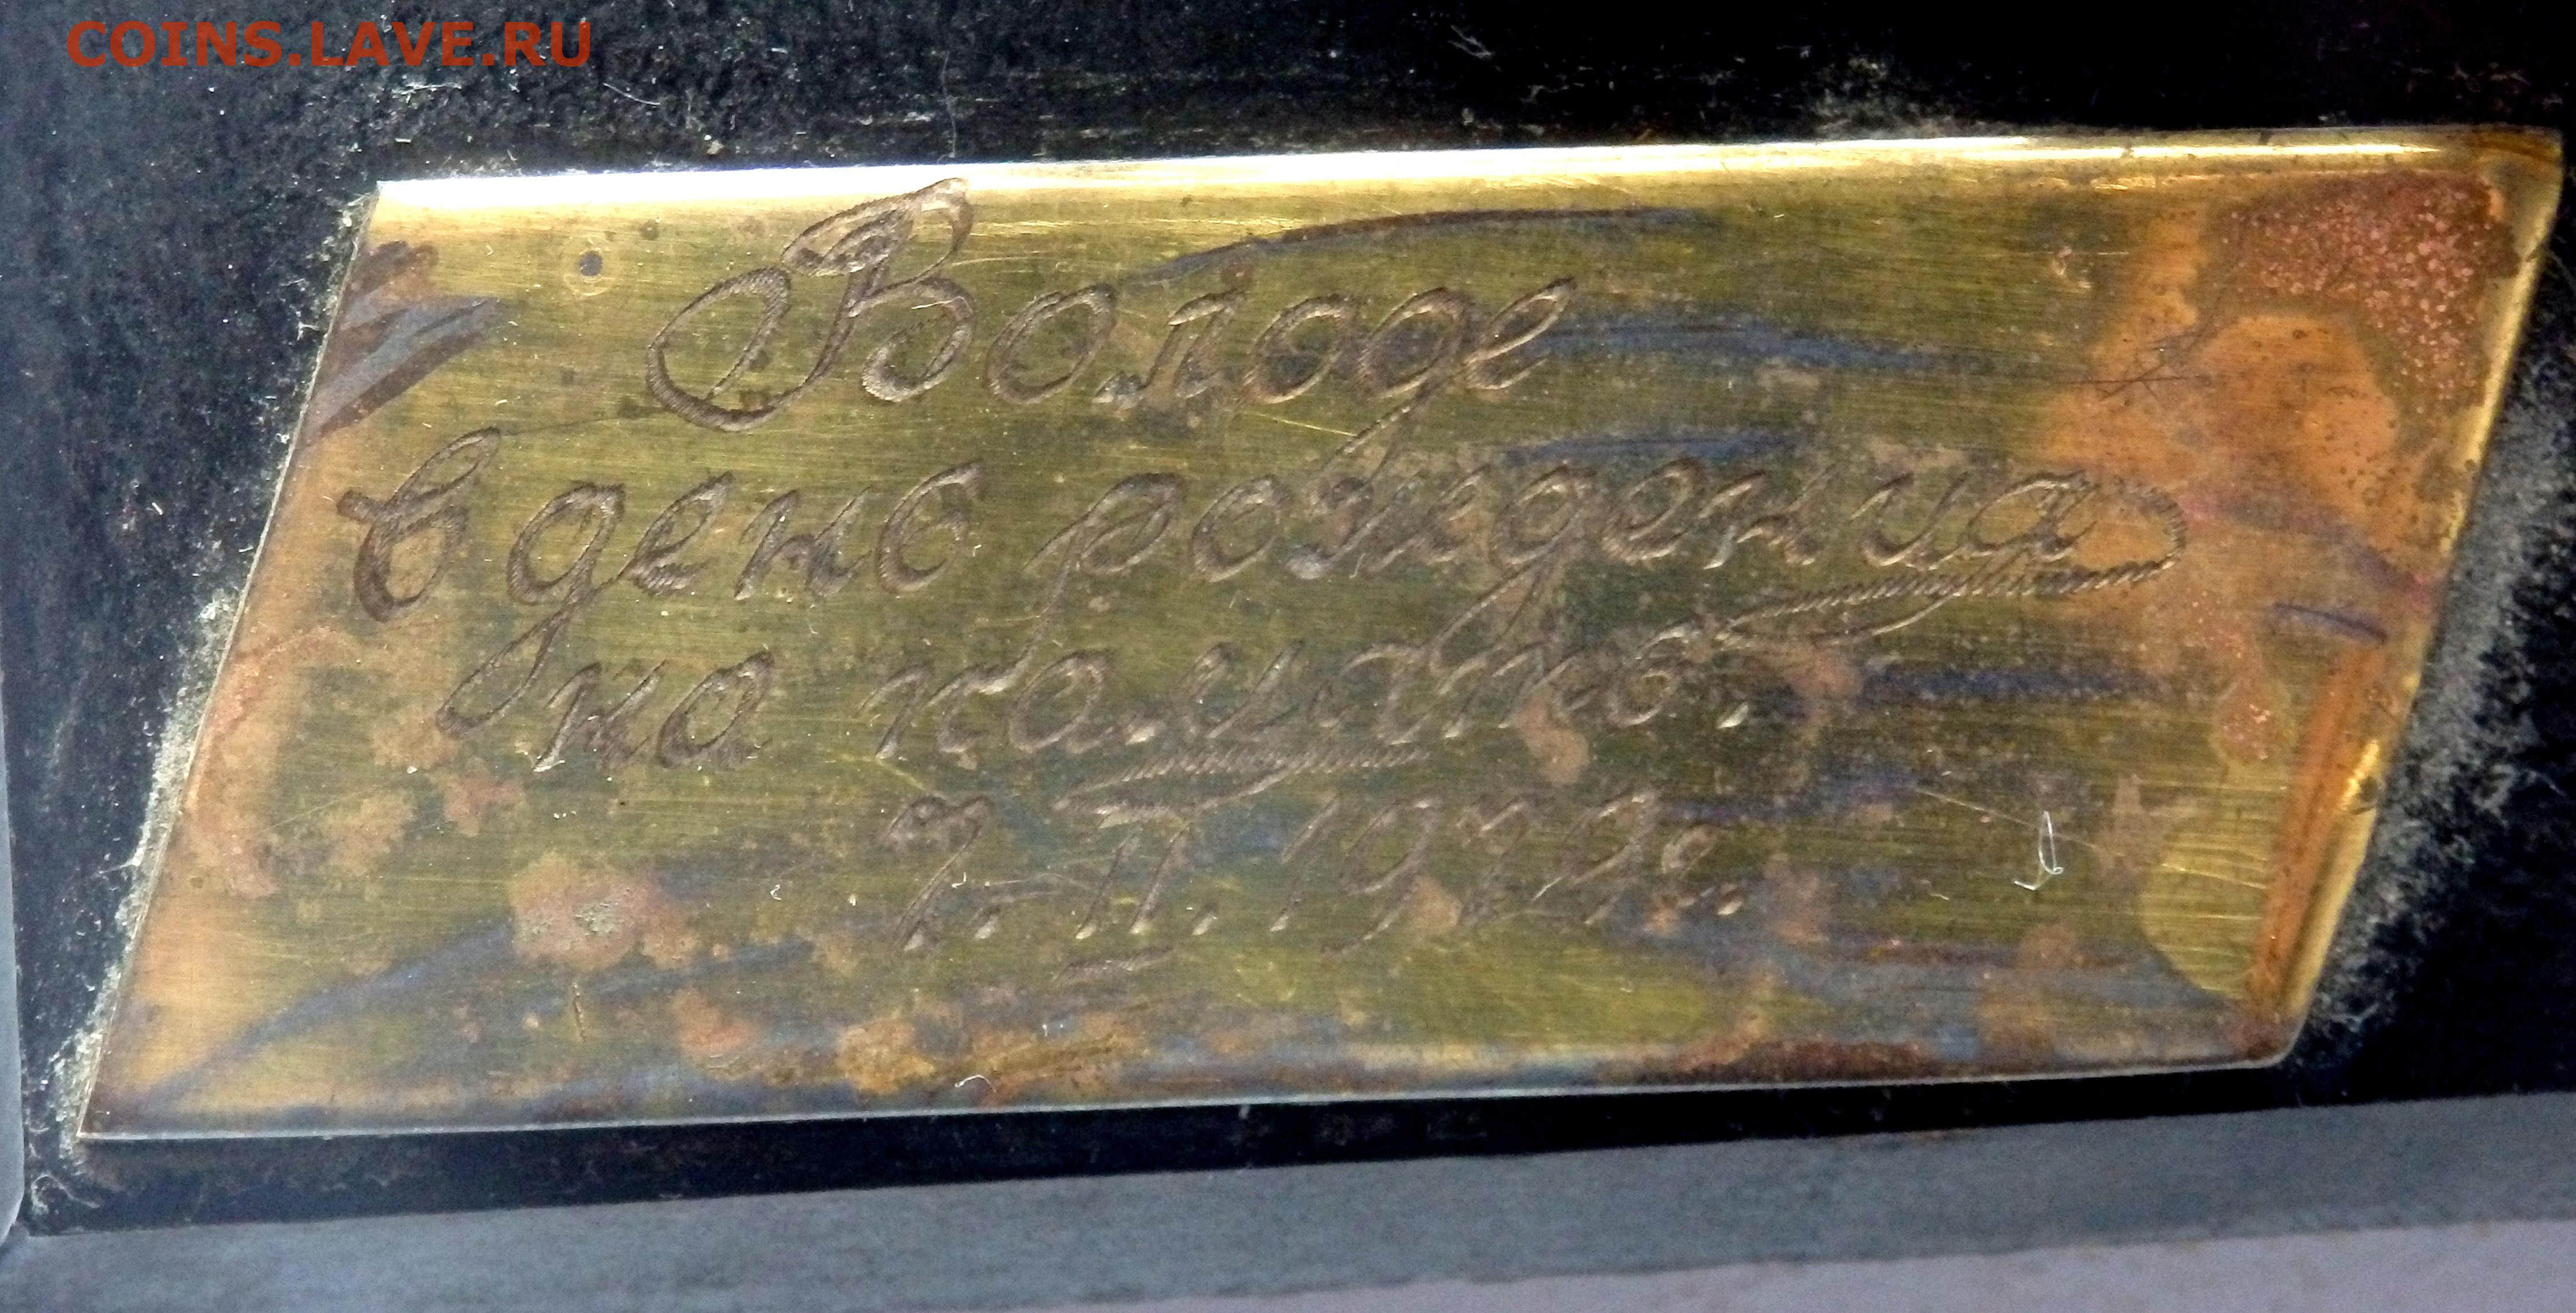 COINS.LAVE.RU
Володе
в день рождения
на память.
7. II. 1974г.